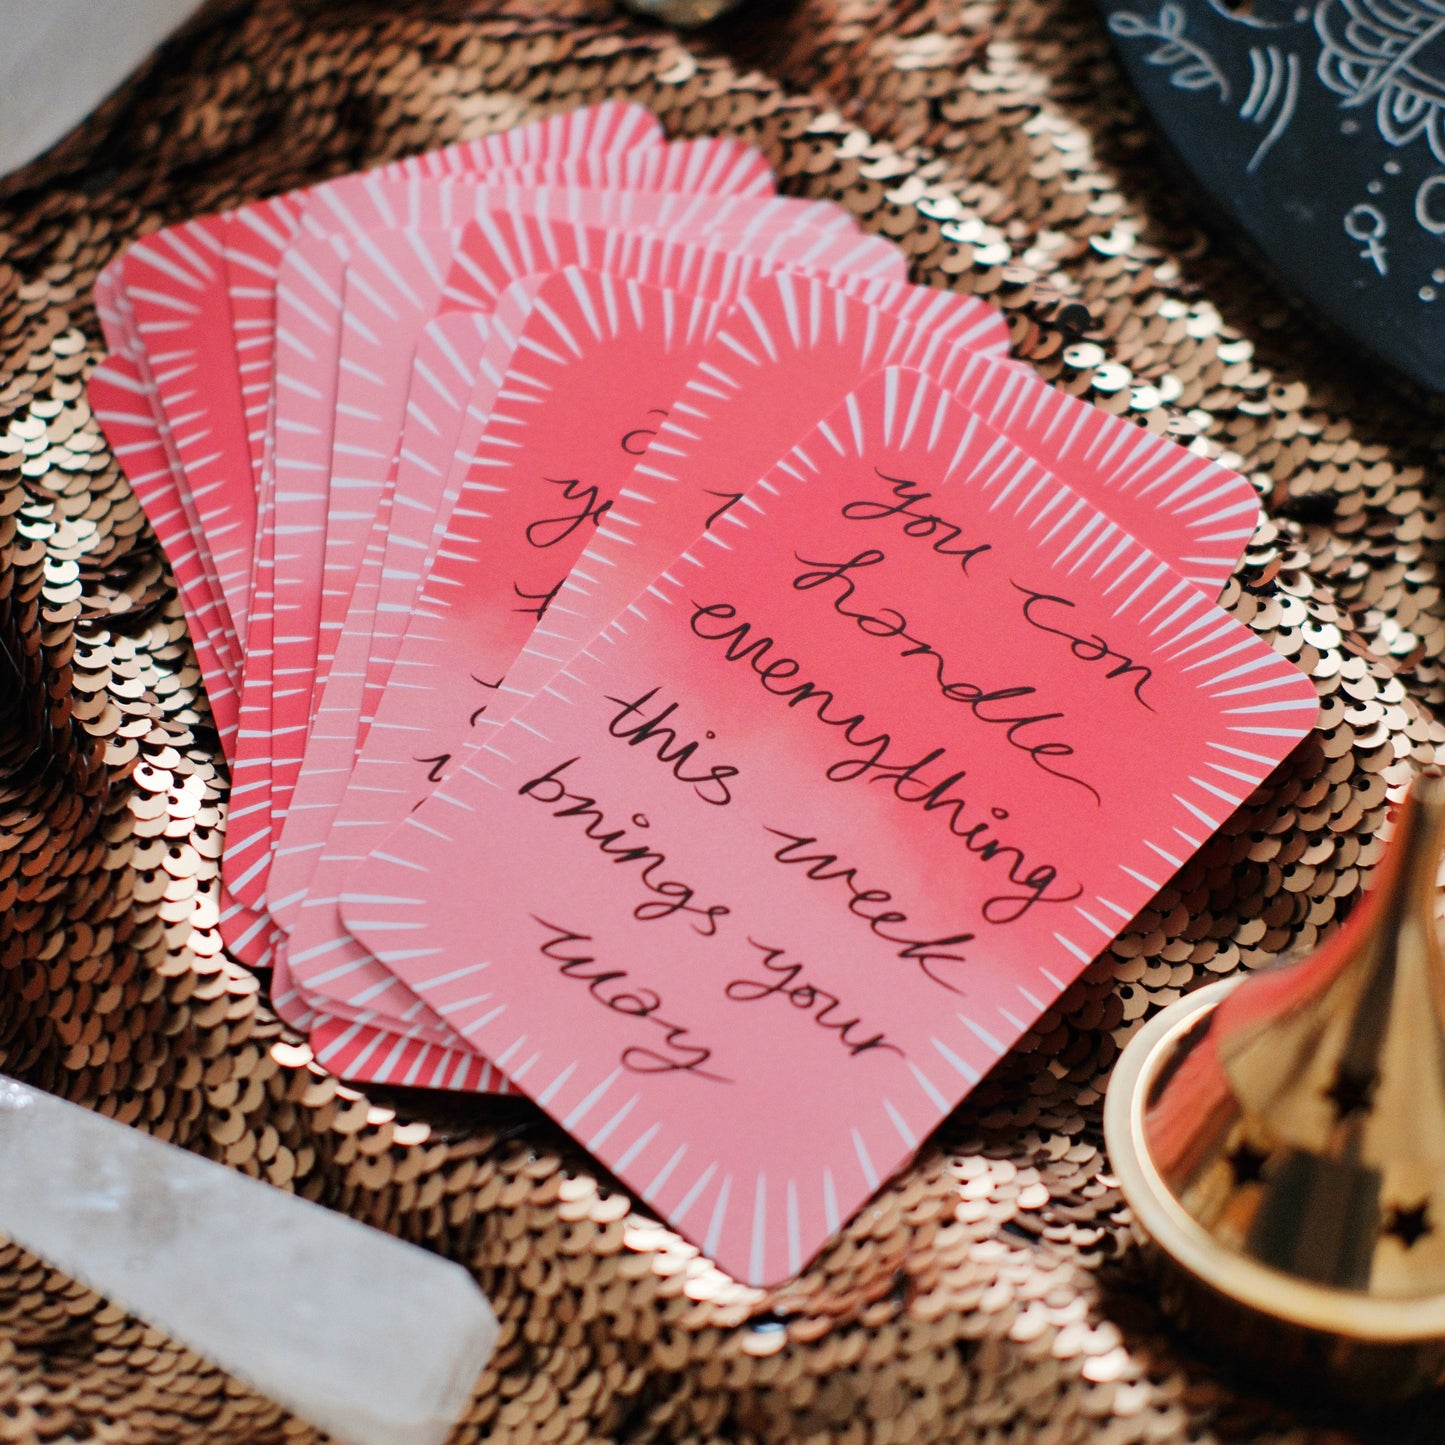 you can
handle
everything
this week
brings your
way